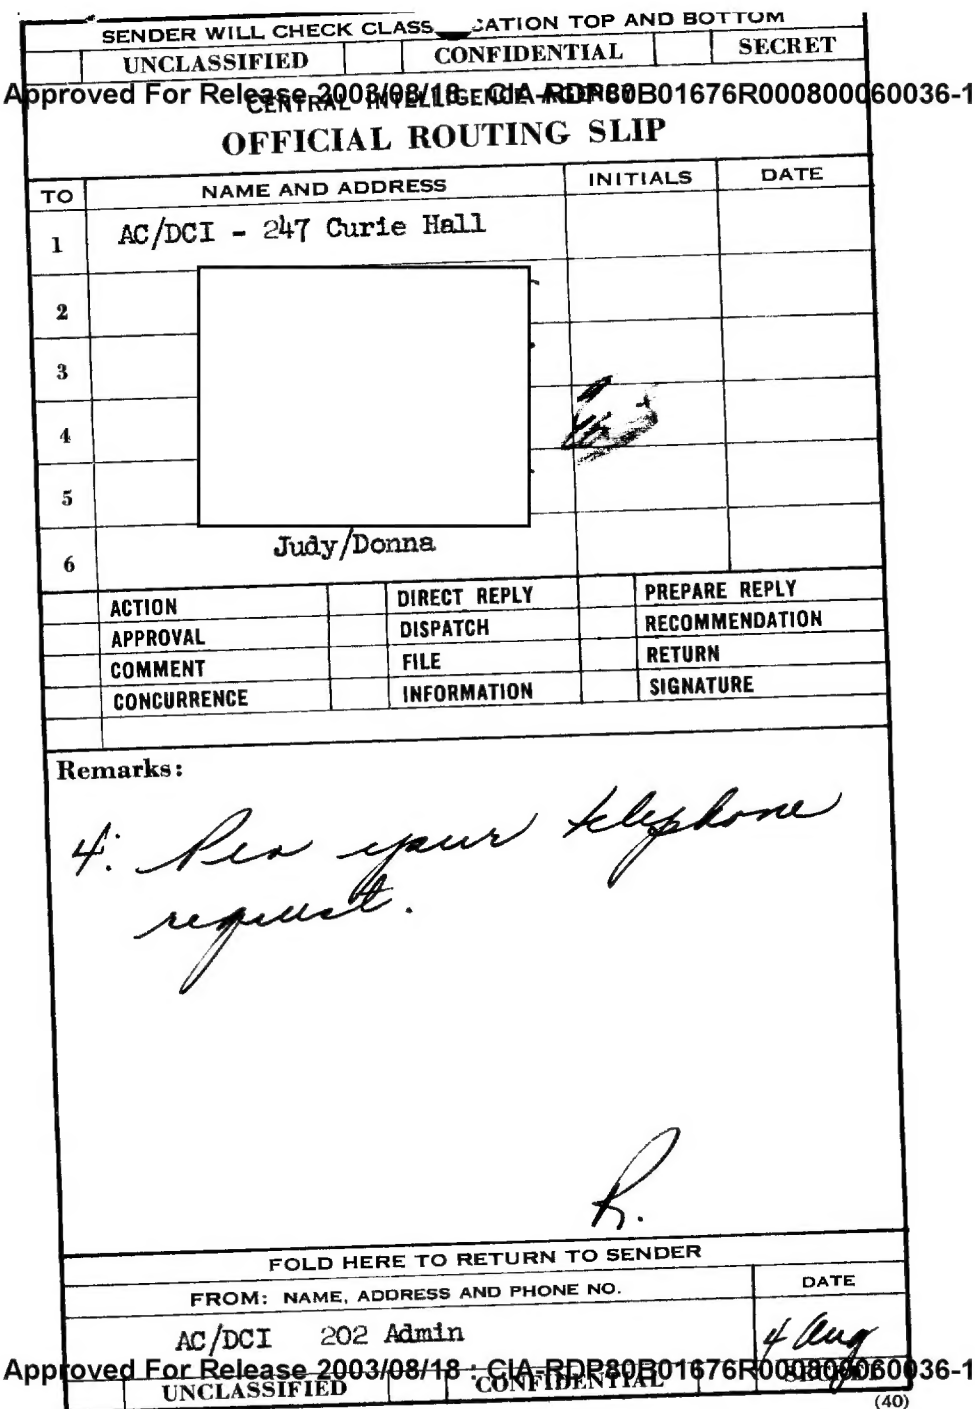 SENDER WILL CHECK CLASS CATION TOP AND BOTTOM
UNCLASSIFIED CONFIDENTIAL SECRET
Approved For Release 2003/08/18 : CIA-RDP80B01676R000800060036-1
CENTRAL INTELLIGENCE AGENCY
OFFICIAL ROUTING SLIP
TO NAME AND ADDRESS INITIALS DATE
1 AC/DCI - 247 Curie Hall
2
3
4
5
6 Judy/Donna
ACTION DIRECT REPLY PREPARE REPLY
APPROVAL DISPATCH RECOMMENDATION
COMMENT FILE RETURN
CONCURRENCE INFORMATION SIGNATURE
Remarks:
4: Per your telephone
request.
R.
FOLD HERE TO RETURN TO SENDER
FROM: NAME, ADDRESS AND PHONE NO. DATE
AC/DCI 202 Admin 4 Aug
Approved For Release 2003/08/18 : CIA-RDP80B01676R000800060036-1
UNCLASSIFIED CONFIDENTIAL SECRET
(40)